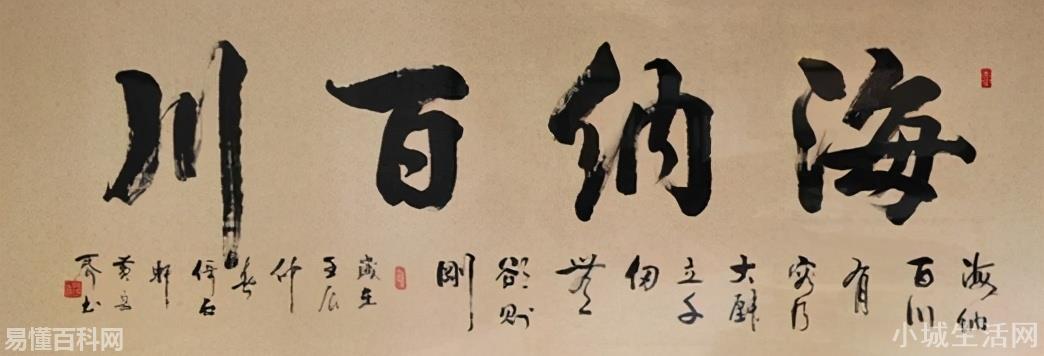 海納百川
海納
百川
有
容乃
大壁
立千
仞
無
欲則
剛
歲在
壬辰
仲
春
軒
書
易懂百科网
小城生活网